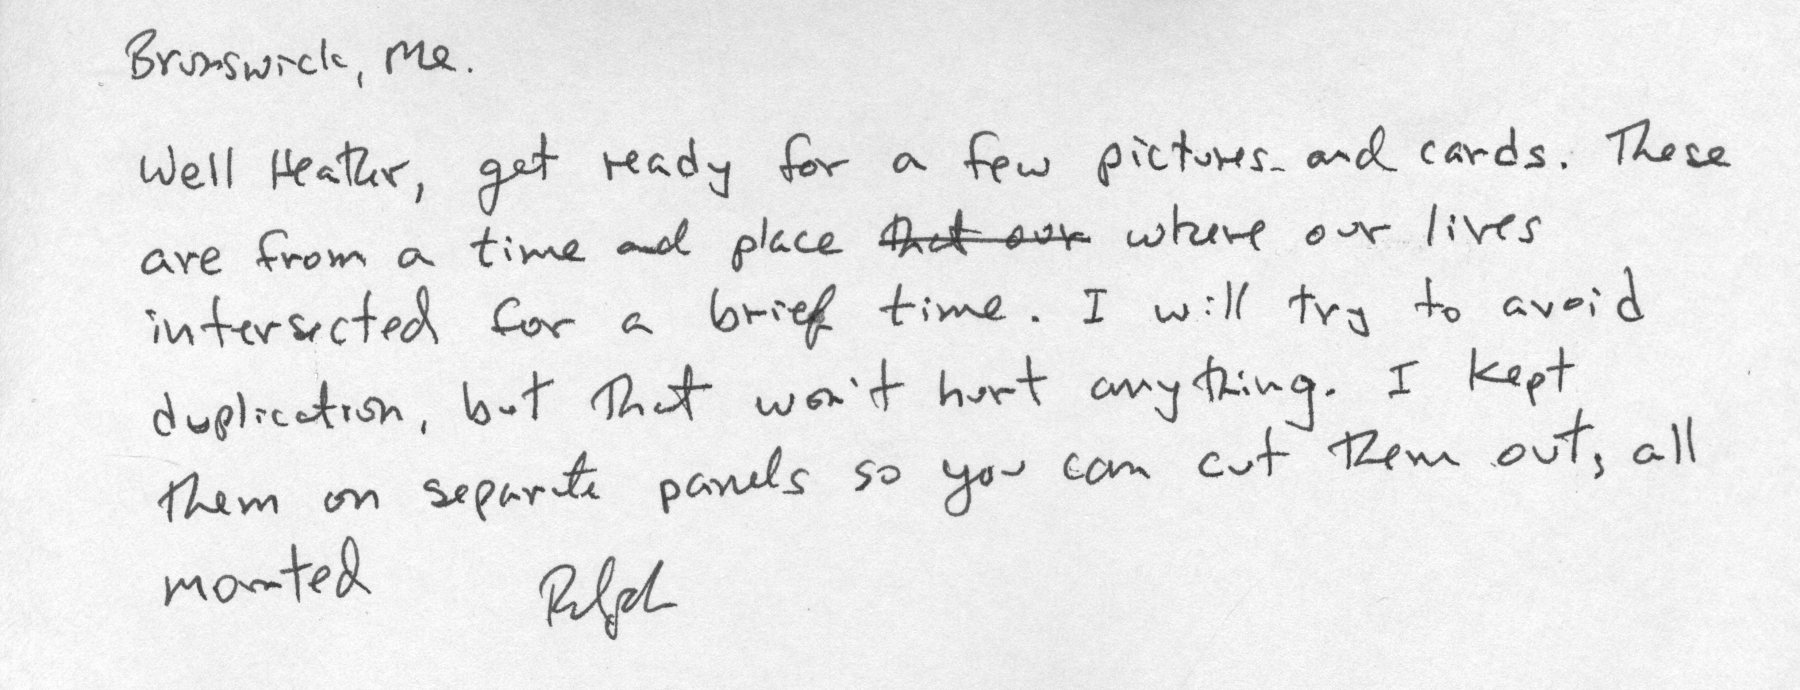 Brunswick, Me.
Well Heather, get ready for a few pictures and cards. These
are from a time and place ~~that our~~ where our lives
intersected for a brief time. I will try to avoid
duplication, but that won't hurt anything. I kept
them on separate panels so you can cut them out, all
mounted Ralph